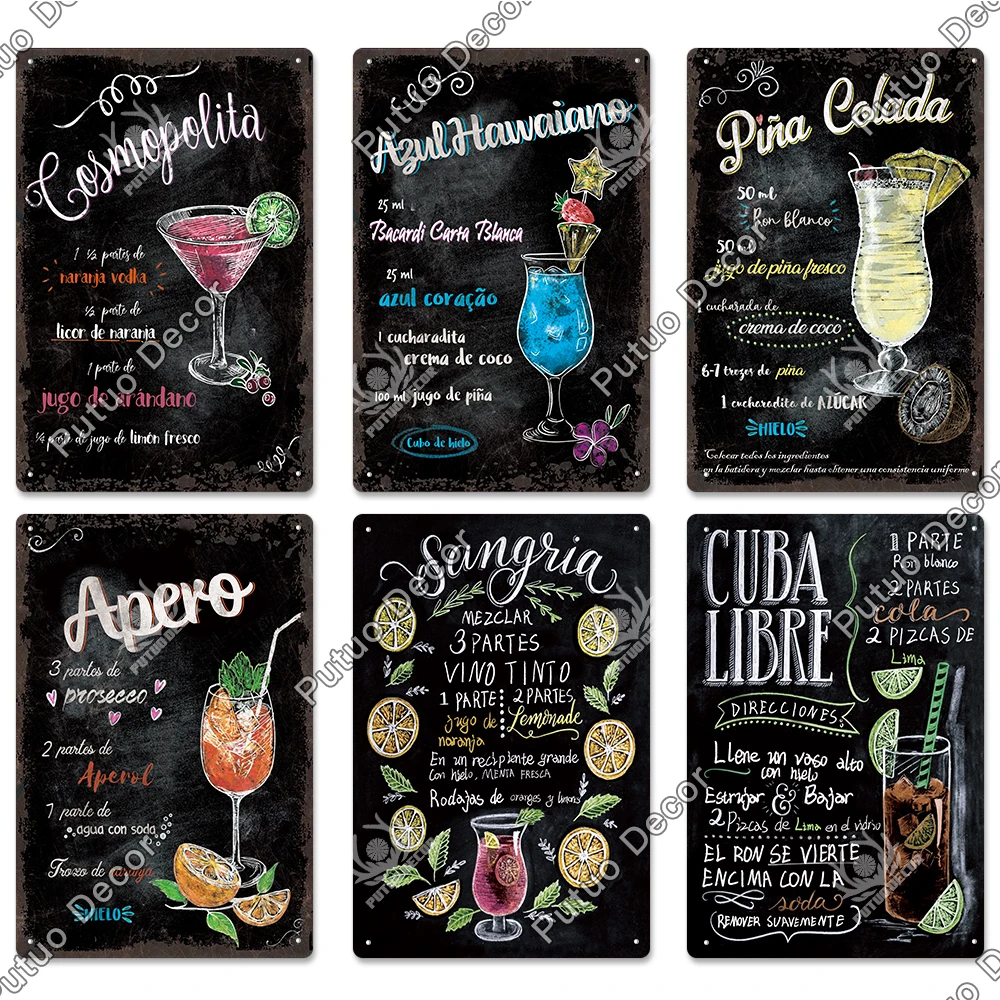 Cosmopolita
1 ½ partes de
naranja vodka
½ parte de
licor de naranja
1 parte de
jugo de arándano
¼ parte de jugo de limón fresco
Azul Hawaiano
25 ml
Bacardi Carta Blanca
25 ml
azul coração
1 cucharadita
crema de coco
100 ml jugo de piña
Cubo de hielo
Piña Colada
50 ml
Ron blanco
50 ml
jugo de piña fresco
1 cucharada de
crema de coco
6-7 trozos de piña
1 cucharadita de AZÚCAR
HIELO
*Colocar todos los ingredientes
en la batidora y mezclar hasta obtener una consistencia uniforme
Apero
3 partes de
prosecco
2 partes de
Aperol
1 parte de
agua con soda
Trozo de naranja
HIELO
Sangria
MEZCLAR
3 PARTES
VINO TINTO
1 PARTE
jugo de
naranja
2 PARTES
Lemonade
En un recipiente grande
con hielo, MENTA FRESCA
Rodajas de oranges y limons
CUBA
LIBRE
1 PARTE
Ron blanco
2 PARTES
cola
2 PIZCAS DE
Lima
DIRECCIONES:
Llene un vaso alto
con hielo
Estrujar & Bajar
2 Pizcas de Lima en el vidrio
EL RON SE VIERTE
ENCIMA CON LA
soda
REMOVER SUAVEMENTE
Putuo Decor